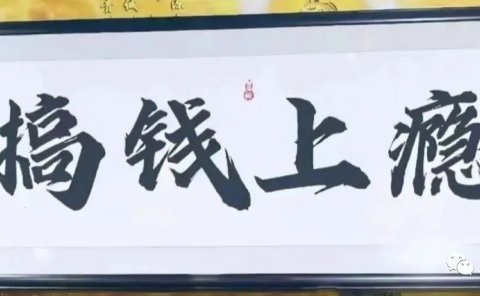 搞钱上瘾